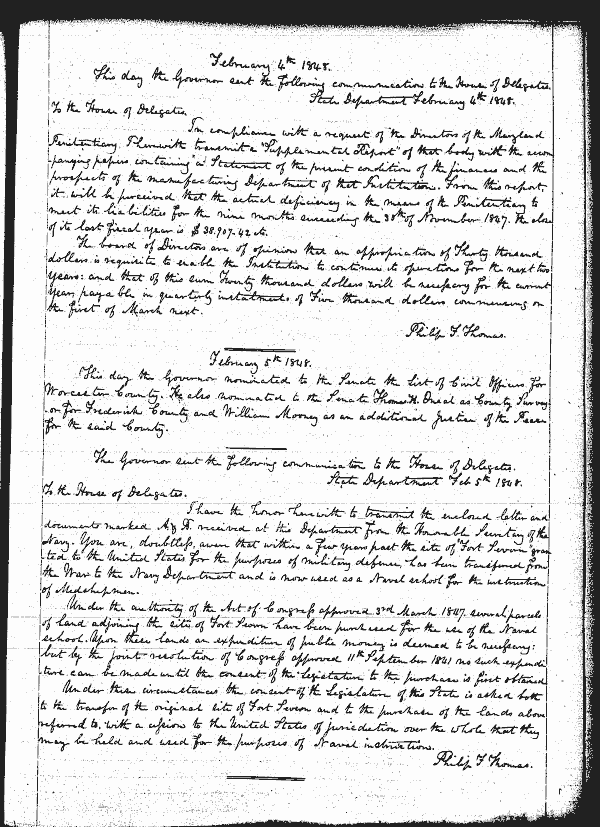 February 4th 1848.
This day the Governor sent the following communication to the House of Delegates.
State Department February 4th 1848.
To the House of Delegates.
In compliance with a request of the Directors of the Maryland
Penitentiary I herewith transmit a "Supplemental Report" of that body with the accom
panying papers containing "a Statement of the present condition of the finances and the
prospects of the manufacturing Department of that Institution. From this report
it will be perceived that the actual deficiency in the means of the Penitentiary to
meet its liabilities for the nine months succeeding the 30th of November 1847. the close
of its last fiscal year is $38.907.42 cts.
The board of Directors are of opinion that an appropriation of Thirty thousand
dollars is requisite to enable the Institution to continue its operations for the next two
years: and that of this sum Twenty thousand dollars will be necessary for the current
year, payable in quarterly instalments of Five thousand dollars commencing on
the first of March next.
Philip F. Thomas.
February 5th 1848.
This day the Governor nominated to the Senate the List of Civil Officers for
Worcester County. He also nominated to the Senate Thomas H. Oneal as County Survey
-or for Frederick County and William Mooney as an additional Justice of the Peace
for the said County.
The Governor sent the following communication to the House of Delegates.
State Department Feb 5th 1848.
To the House of Delegates.
I have the honor herewith to transmit the enclosed letter and
documents marked received at this Department from the Honorable Secretary of the
Navy. You are, doubtless, aware that within a few years past the site of "Fort Severn" gran
-ted to the United States for the purposes of military defence, has been transferred from
the War to the Navy Department and is now used as a Naval school for the instruction
of Medshipmen.
Under the authority of the Act of Congress approved 3rd March 1847. several parcels
of land adjoining the site of Fort Severn have been purchased for the use of the Naval
school. Upon these lands an expenditure of public money is deemed to be necessary:
but by the joint resolution of Congress approved 11th September 1841 no such expendi
ture can be made until the consent of the Legislature to the purchase is first obtained
Under these circumstances the consent of the Legislature of this State is asked both
to the transfer of the original site of Fort Severn and to the purchase of the lands above
referred to, with a cession to the United States of jurisdiction over the whole that they
may be held and used for the purposes of Naval instruction.
Philip F Thomas.